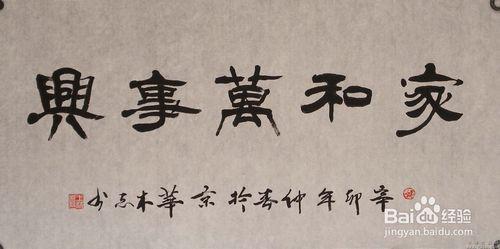 家和萬事興
辛卯年仲春於京華木志书
Baidu 经验
jingyan.baidu.com